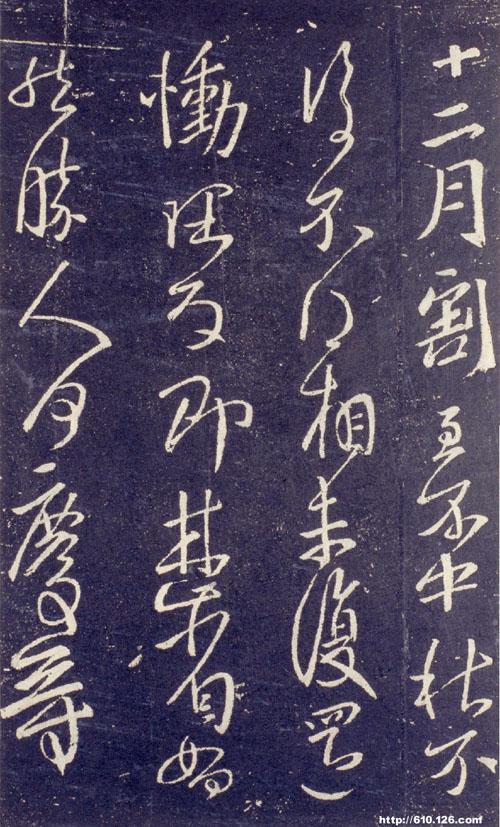 十二月割至不中秋不
復不得相未復還
慟理為即甚省如
然勝人何慶等
http://610.126.com